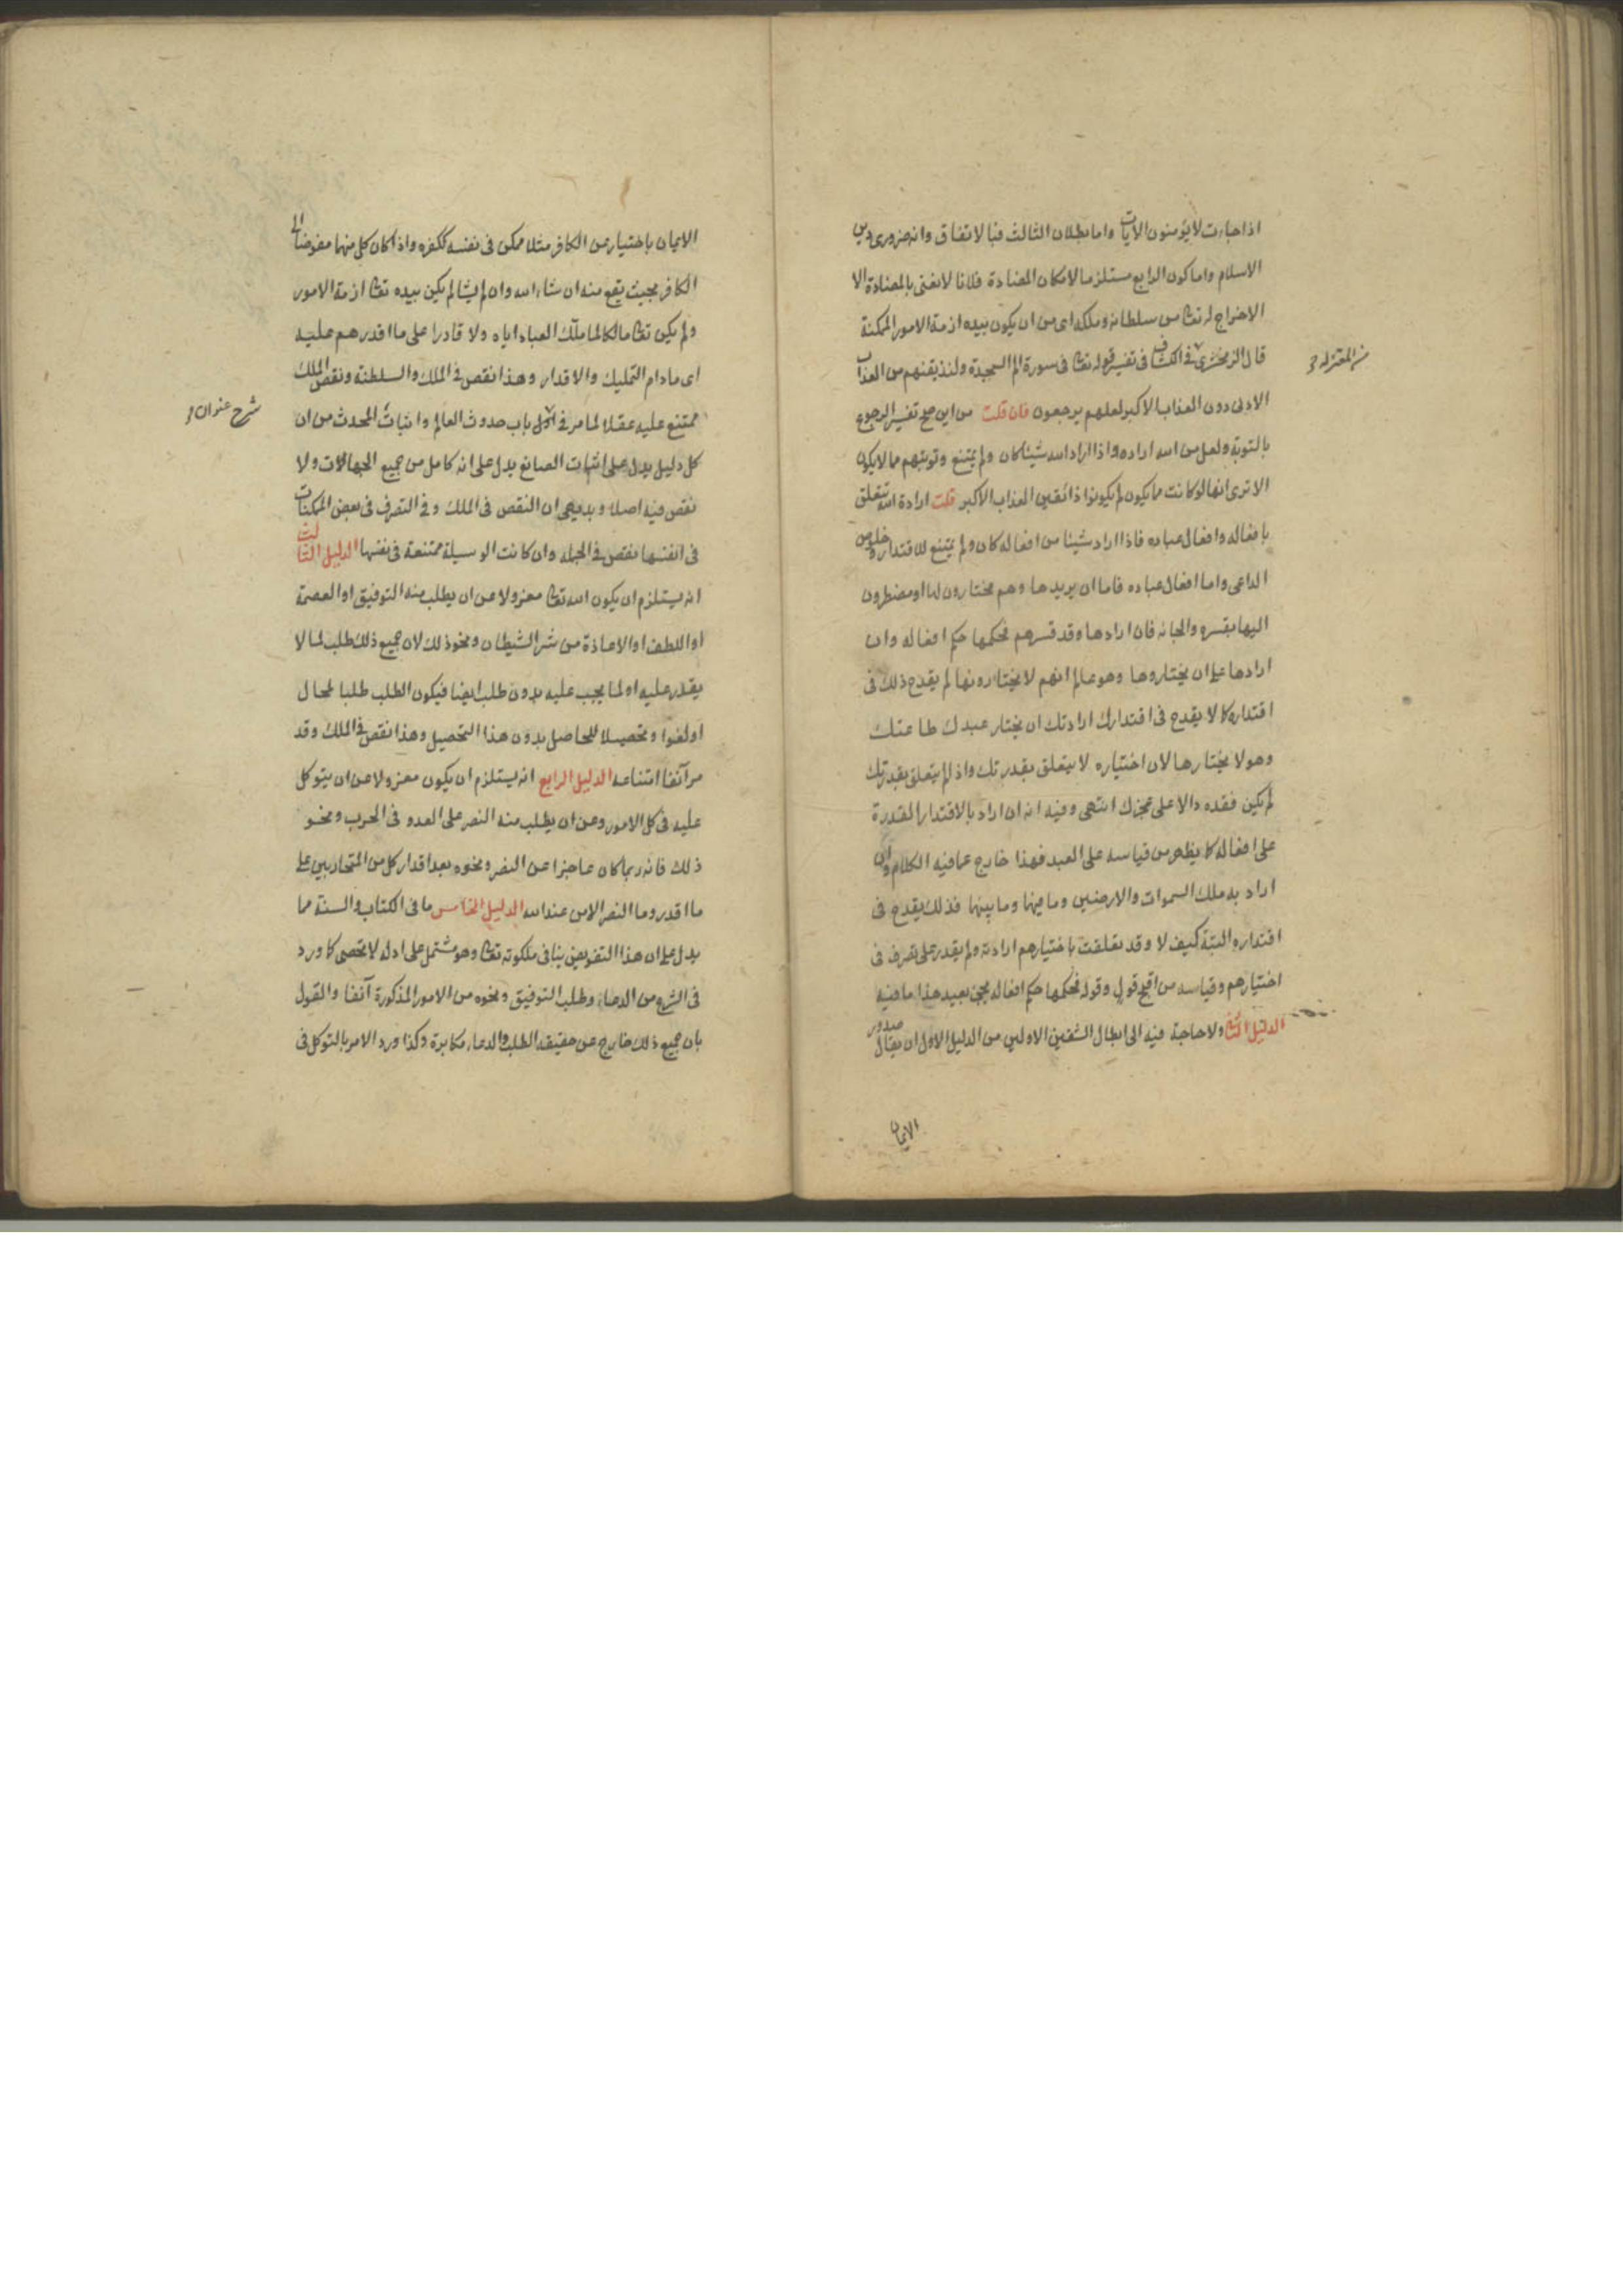 اذا جاءت لا يؤمنون الآيات واما بطلان الثالث فبالاتفاق وانه ضرورى دين
الاسلام واما كون الرابع مستلزما لامكان المضادة فلانا لا نعنى بالمضادة الا
الاخراج له تعا من سلطانه وملكه اى من ان يكون بيده ازمة الامور الممكنة
قال الزمخشرى فى الكشاف فى تفسير قوله تعا فى سورة الم السجدة ولنذيقنهم من العذاب
من المعتزلة
الادنى دون العذاب الاكبر لعلهم يرجعون فان قلت من اين صح تفسير الرجوع
بالتوبة ولعل من الله ارادة واذا اراد الله شيئا كان ولم يمتنع وتوبتهم مما لا يكون
الا ترى انها لو كانت مما يكون لم يكونوا ذائقين العذاب الاكبر قلت ارادة الله تتعلق
بافعاله وافعال عباده فاذا اراد شيئا من افعاله كان ولم يمتنع للاقتدار وخلوص
الداعى واما افعال عباده فاما ان يريدها وهم مختارون لها او مضطرون
اليها بقسره والجائه فان ارادها وقد قسرهم فحكمها حكم افعاله وان
ارادها على ان يختاروها وهو عالم انهم لا يختارونها لم يقدح ذلك فى
اقتداره كما لا يقدح فى اقتدارك ارادتك ان يختار عبدك طاعتك
وهو لا يختارها لان اختياره لا يتعلق بقدرتك واذ لم يتعلق بقدرتك
لم يكن فقده دالا على عجزك انتهى وفيه انه ان اراد بالاقتدار القدرة
على افعاله كما يظهر من قياسه على العبد فهذا خارج عما فيه الكلام وان
اراد به ملك السموات والارضين وما فيها وما بينها فذلك يقدح فى
اقتداره البتة كيف لا وقد تعلقت باختيارهم ارادته ولم يقدر على تصرف فى
اختيارهم وقياسه من اقبح قول وقوله فحكمها حكم افعاله يجئ بعيد هذا ما فيه
الدليل الثانى ولا حاجة فيه الى ابطال الشقين الاولين من الدليل الاول ان يقال صدور
الايمان
الايمان باختيار من الكافر مثلا ممكن فى نفسه ككفره واذا كان كل منهما مفوضا الى
الكافر بحيث يقع منه ان شاء الله وان لم يشا لم يكن بيده تعا ازمة الامور
ولم يكن تعا مالكا لما ملّك العباد اياه ولا قادرا على ما اقدرهم عليه
اى مادام التمليك والاقدار وهذا نقص فى الملك والسلطنة ونقص الملك
ممتنع عليه عقلا لما مر فى اول باب حدوث العالم واثبات المحدث من ان
شرح عنوان
كل دليل يدل على اثبات الصانع يدل على انه كامل من جميع الجهات ولا
نقص فيه اصلا وبديهى ان النقص فى الملك وفى التصرف فى بعض الممكنات
فى انفسها نقص فى الجملة وان كانت الوسيلة ممتنعة فى نفسها الدليل الثالث
انه يستلزم ان يكون الله تعا معزولا عن ان يطلب منه التوفيق او العصمة
او اللطف او الاعاذة من شر الشيطان ونحو ذلك لان جميع ذلك طلب لما لا
يقدر عليه او لما يجب عليه بدون طلب ايضا فيكون الطلب طلبا لمحال
او لغوا وتحصيلا للحاصل بدون هذا التحصيل وهذا نقص فى الملك وقد
مر آنفا امتناعه الدليل الرابع انه يستلزم ان يكون معزولا عن ان يتوكل
عليه فى كل الامور وعن ان يطلب منه النصر على العدو فى الحرب ونحو
ذلك فانه ربما كان عاجزا عن النصر ونحوه بعد اقدار كل من المتحاربين على
ما اقدر وما النصر الا من عند الله الدليل الخامس ما فى الكتاب والسنة مما
يدل على ان هذا التفويض ينافى ملكوته تعا وهو مشتمل على ادلة لا تحصى كما ورد
فى الشرع من الدعاء وطلب التوفيق ونحوه من الامور المذكورة آنفا والقول
بان جميع ذلك خارج عن حقيقة الطلب والدعاء مكابرة وكذا ورد الامر بالتوكل فى